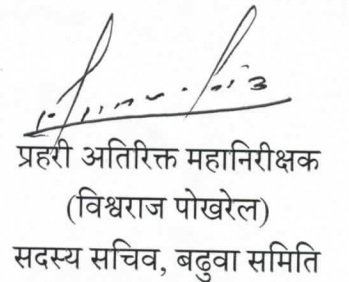 प्रहरी अतिरिक्त महानिरीक्षक
(विश्वराज पोखरेल)
सदस्य सचिव, बढुवा समिति